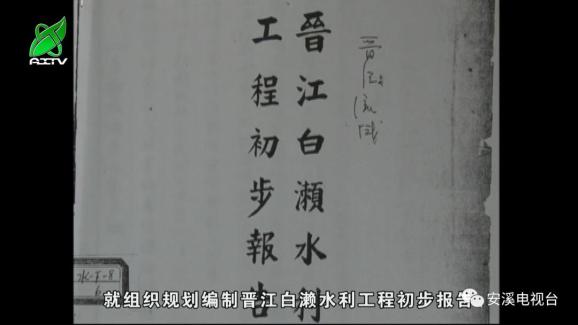 AXTV
晉江白瀨水利
工程初步報告
晋江流域
水-I-8
6
就组织规划编制晋江白濑水利工程初步报告
安溪电视台